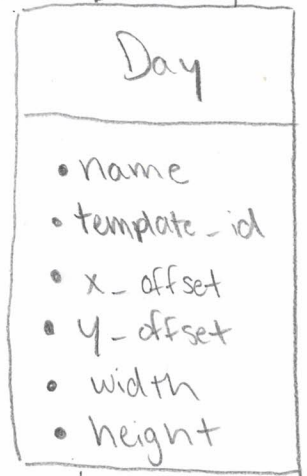 Day
• name
• template_id
• x_offset
• y_offset
• width
• height